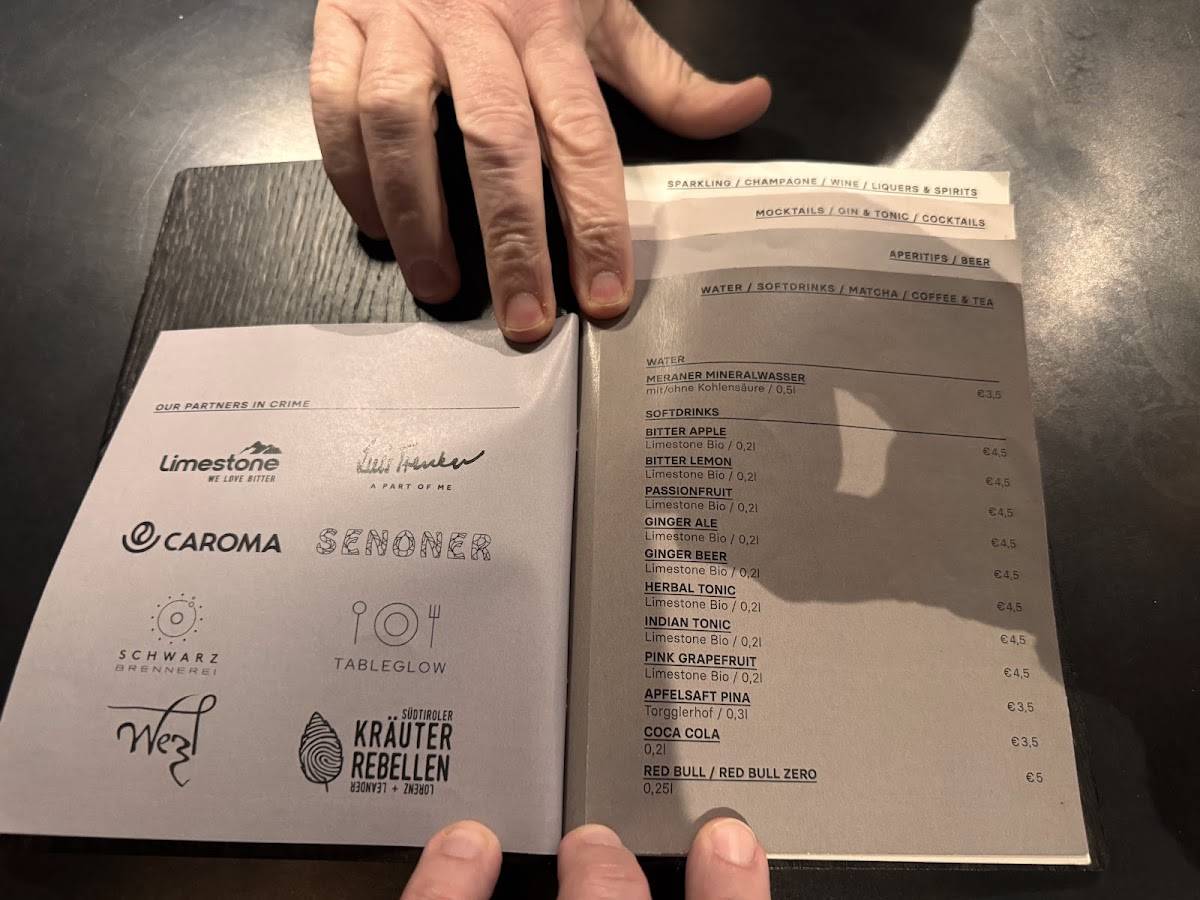 OUR PARTNERS IN CRIME
Limestone
WE LOVE BITTER
Luis Trenker
A PART OF ME
CAROMA
SENONER
SCHWARZ
BRENNEREI
TABLEGLOW
Wezl
SÜDTIROLER
KRÄUTER
REBELLEN
LORENZ + LEANDER
SPARKLING / CHAMPAGNE / WINE / LIQUERS & SPIRITS
MOCKTAILS / GIN & TONIC / COCKTAILS
APERITIFS / BEER
WATER / SOFTDRINKS / MATCHA / COFFEE & TEA
WATER
MERANER MINERALWASSER
mit/ohne Kohlensäure / 0,5l €3,5
SOFTDRINKS
BITTER APPLE
Limestone Bio / 0,2l €4,5
BITTER LEMON
Limestone Bio / 0,2l €4,5
PASSIONFRUIT
Limestone Bio / 0,2l €4,5
GINGER ALE
Limestone Bio / 0,2l €4,5
GINGER BEER
Limestone Bio / 0,2l €4,5
HERBAL TONIC
Limestone Bio / 0,2l €4,5
INDIAN TONIC
Limestone Bio / 0,2l €4,5
PINK GRAPEFRUIT
Limestone Bio / 0,2l €4,5
APFELSAFT PINA
Torgglerhof / 0,3l €3,5
COCA COLA
0,2l €3,5
RED BULL / RED BULL ZERO €5
0,25l